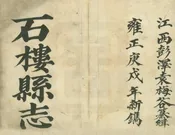 江西彭澤袁梅谷纂輯
雍正庚戌年新鐫
石樓縣志